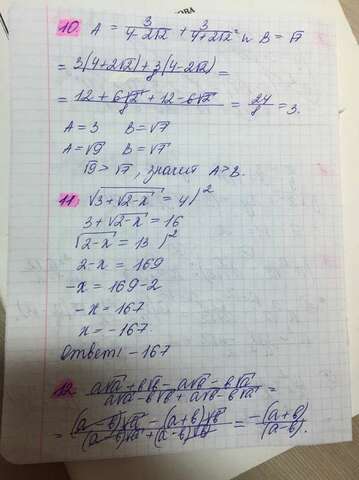 ОВА
10. A = 3/(4-2√2) + 3/(4+2√2) и B = √7
= (3(4+2√2)+3(4-2√2))/8 =
= (12+6√2+12-6√2)/8 = 24/8 = 3.
A=3 B=√7
A=√9 B=√7
√9 > √7, значит A>B.
11. √(3+√(2-x)) = 4)²
3+√(2-x) = 16
√(2-x) = 13)²
2-x = 169
-x = 169-2
-x = 167
x = -167
Ответ: -167
12. (a√a+b√b-a√b-b√a)/(a√a-b√b+a√b-b√a) =
= ((a-b)√a-(a+b)√b)/((a-b)√a+(a-b)√b) = -(a+b)/(a-b).